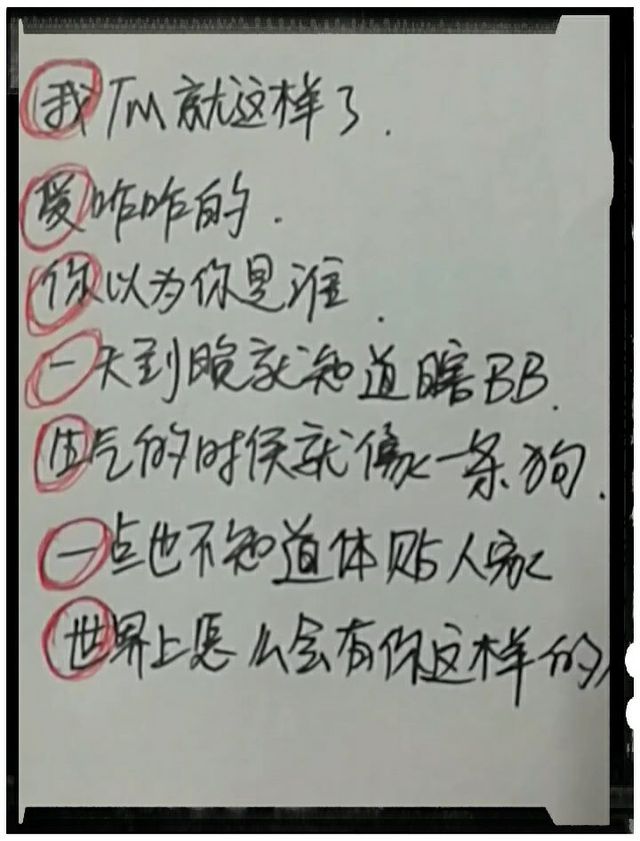 我TM就这样了.
爱咋咋的.
你以为你是谁.
一天到晚就知道瞎BB.
生气的时候就像一条狗.
一点也不知道体贴人家
世界上怎么会有你这样的人